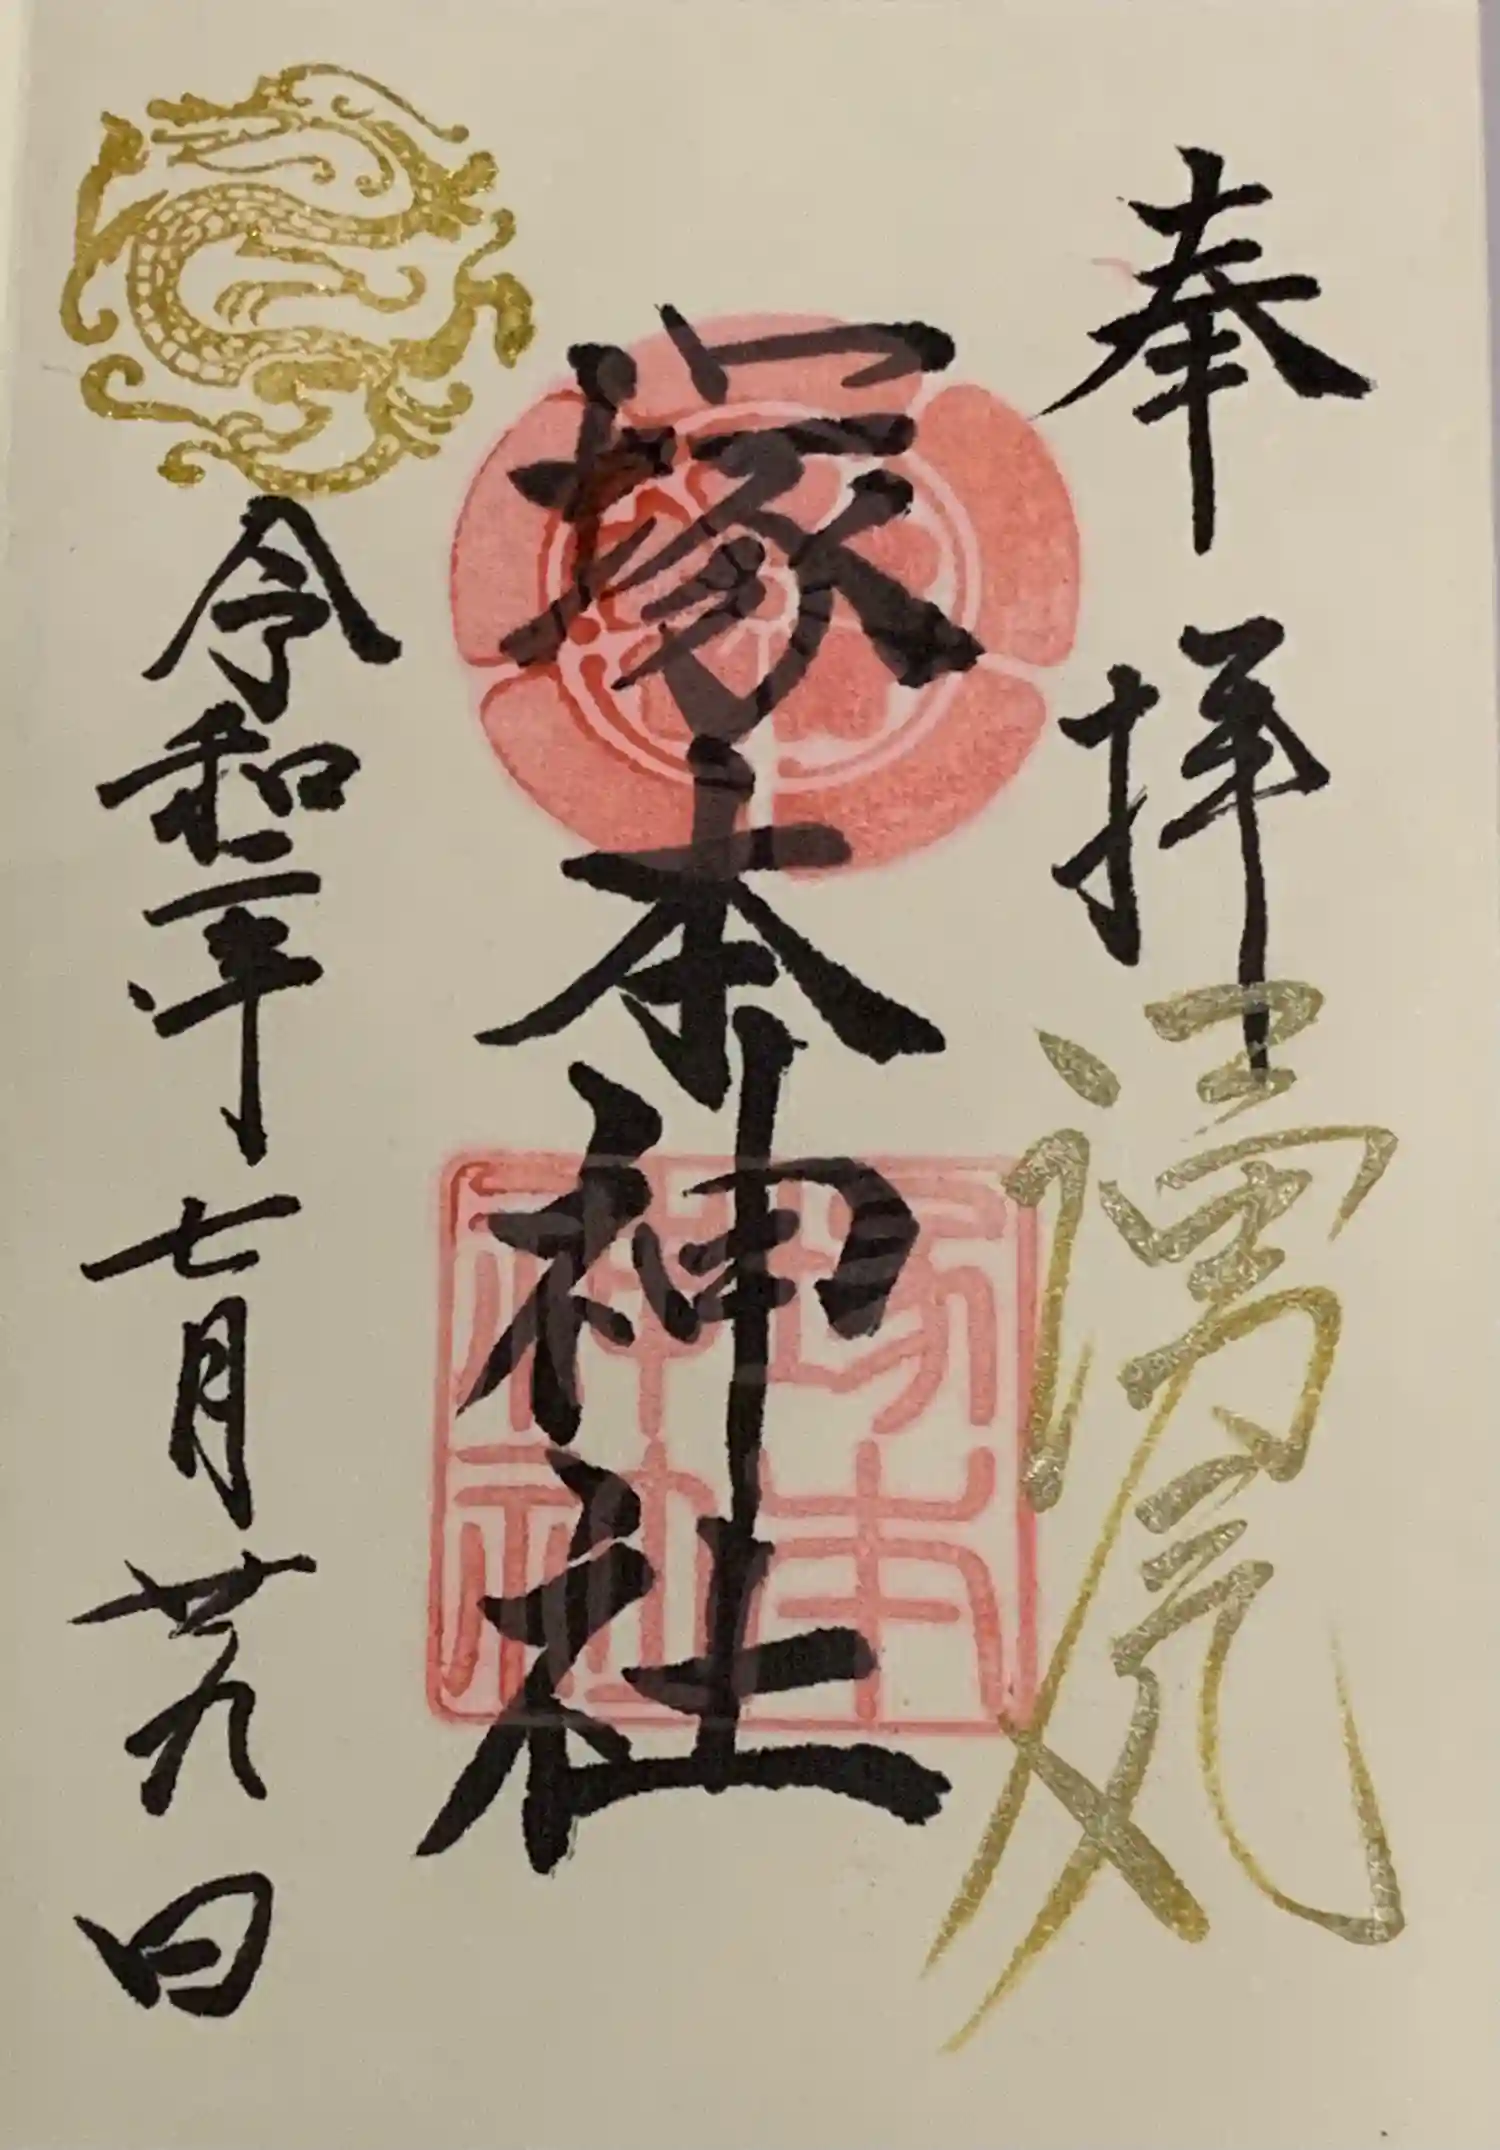 奉拝
塚本神社
令和二年七月廿九日
塚本
神社